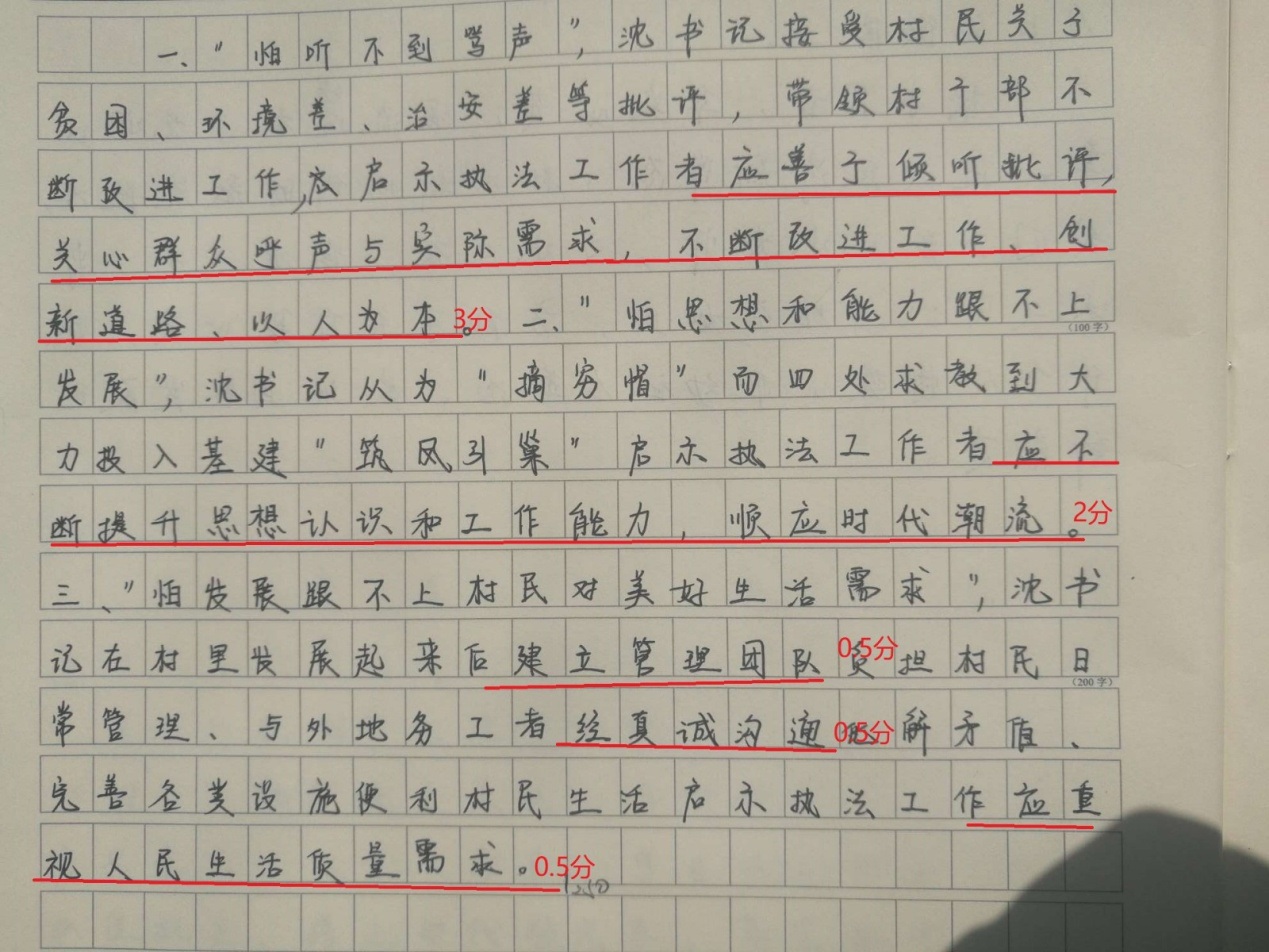 一、"怕听不到骂声",沈书记接受村民关于
贫困、环境差、治安差等批评,带领村干部不
断改进工作,启示执法工作者应善于倾听批评,
关心群众呼声与实际需求,不断改进工作、创
新道路、以人为本。3分 二、"怕思想和能力跟不上
(100字)
发展",沈书记从为"摘穷帽"而四处求教到大
力投入基建"筑凤引巢"启示执法工作者应不
断提升思想认识和工作能力,顺应时代潮流。2分
三、"怕发展跟不上村民对美好生活需求",沈书
记在村里发展起来后建立管理团队0.5分负担村民日
(200字)
常管理、与外地务工者经真诚沟通0.5分解矛盾、
完善各类设施便利村民生活启示执法工作应重
视人民生活质量需求。0.5分